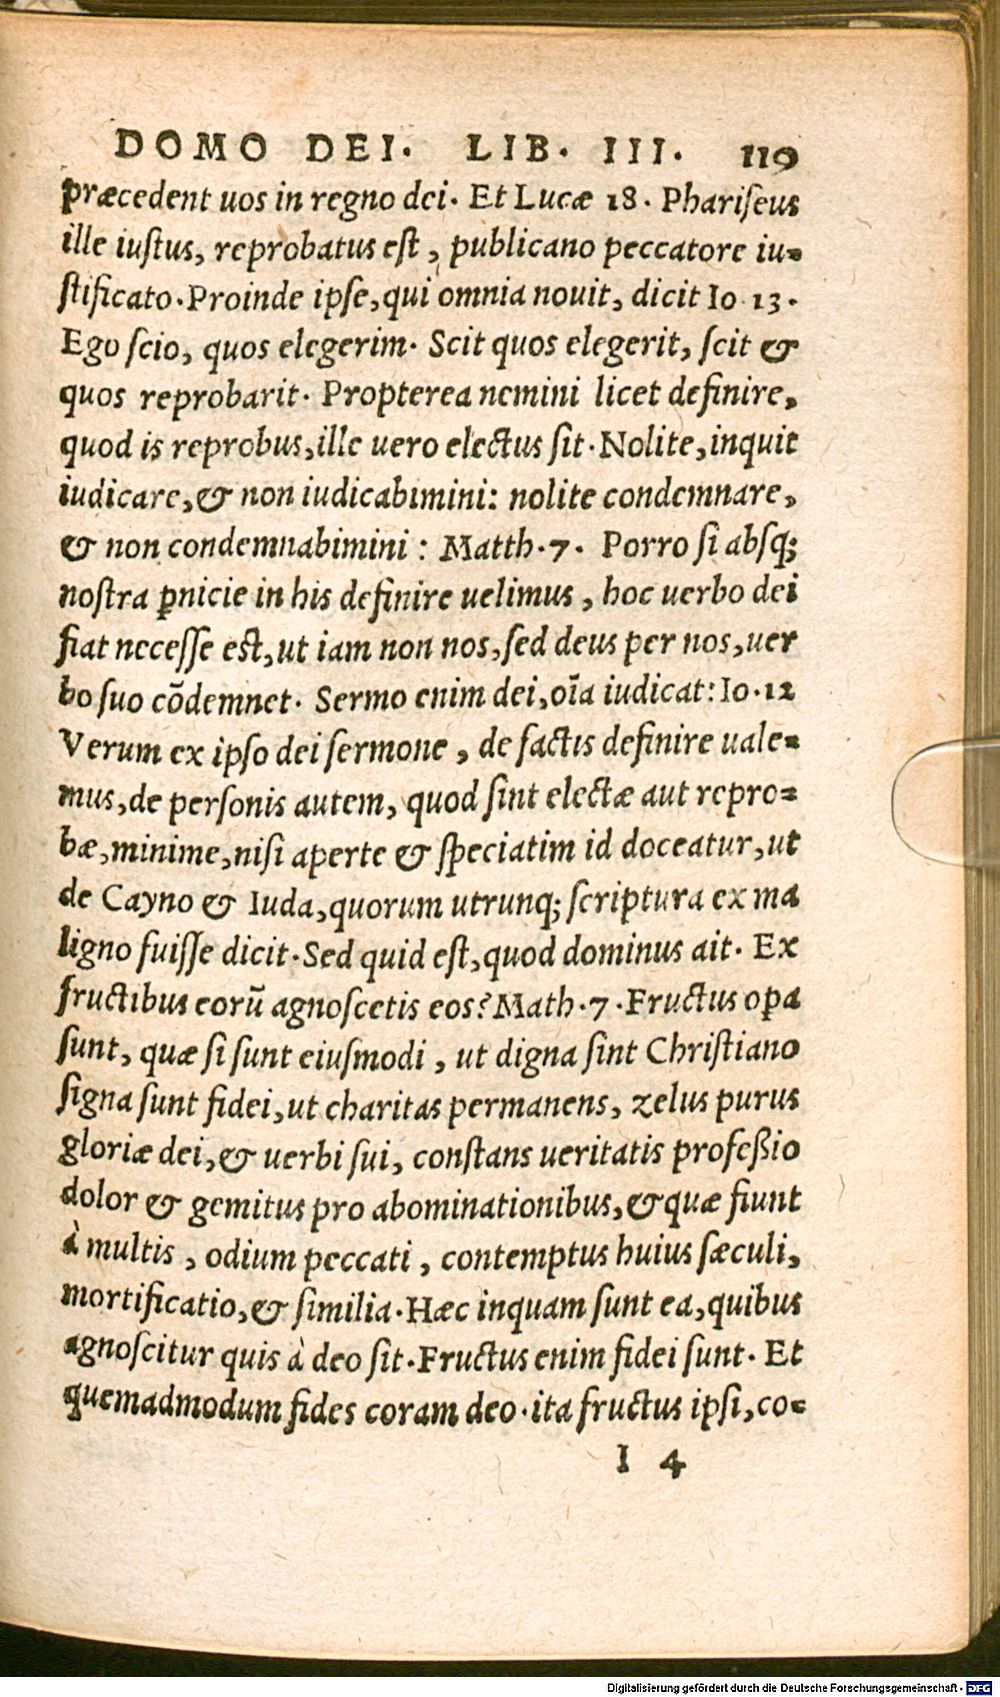 DOMO DEI. LIB. III. 119
præcedent uos in regno dei. Et Lucæ 18. Phariſeus
ille iuſtus, reprobatus eſt, publicano peccatore iu-
ſtificato. Proinde ipſe, qui omnia nouit, dicit Io 13.
Ego ſcio, quos elegerim. Scit quos elegerit, ſcit &
quos reprobarit. Propterea nemini licet definire,
quod is reprobus, ille uero electus ſit. Nolite, inquit
iudicare, & non iudicabimini: nolite condemnare,
& non condemnabimini: Matth. 7. Porro ſi abſq;
noſtra ꝑnicie in his definire uelimus, hoc uerbo dei
fiat neceſſe eſt, ut iam non nos, ſed deus per nos, uer
bo ſuo cõdemnet. Sermo enim dei, oĩa iudicat: Io. 12
Verum ex ipſo dei ſermone, de factis definire uale-
mus, de perſonis autem, quod ſint electæ aut repro-
bæ, minime, niſi aperte & ſpeciatim id doceatur, ut
de Cayno & Iuda, quorum utrunq; ſcriptura ex ma
ligno fuiſſe dicit. Sed quid eſt, quod dominus ait. Ex
fructibus eorũ agnoſcetis eos? Math. 7. Fructus oꝑa
ſunt, quæ ſi ſunt eiuſmodi, ut digna ſint Chriſtiano
ſigna ſunt fidei, ut charitas permanens, zelus purus
gloriæ dei, & uerbi ſui, conſtans ueritatis profeßio
dolor & gemitus pro abominationibus, & quæ fiunt
à multis, odium peccati, contemptus huius ſæculi,
mortificatio, & ſimilia. Hæc inquam ſunt ea, quibus
agnoſcitur quis à deo ſit. Fructus enim fidei ſunt. Et
quemadmodum fides coram deo. ita fructus ipſi, co-
I 4
Digitalisierung gefördert durch die Deutsche Forschungsgemeinschaft - DFG